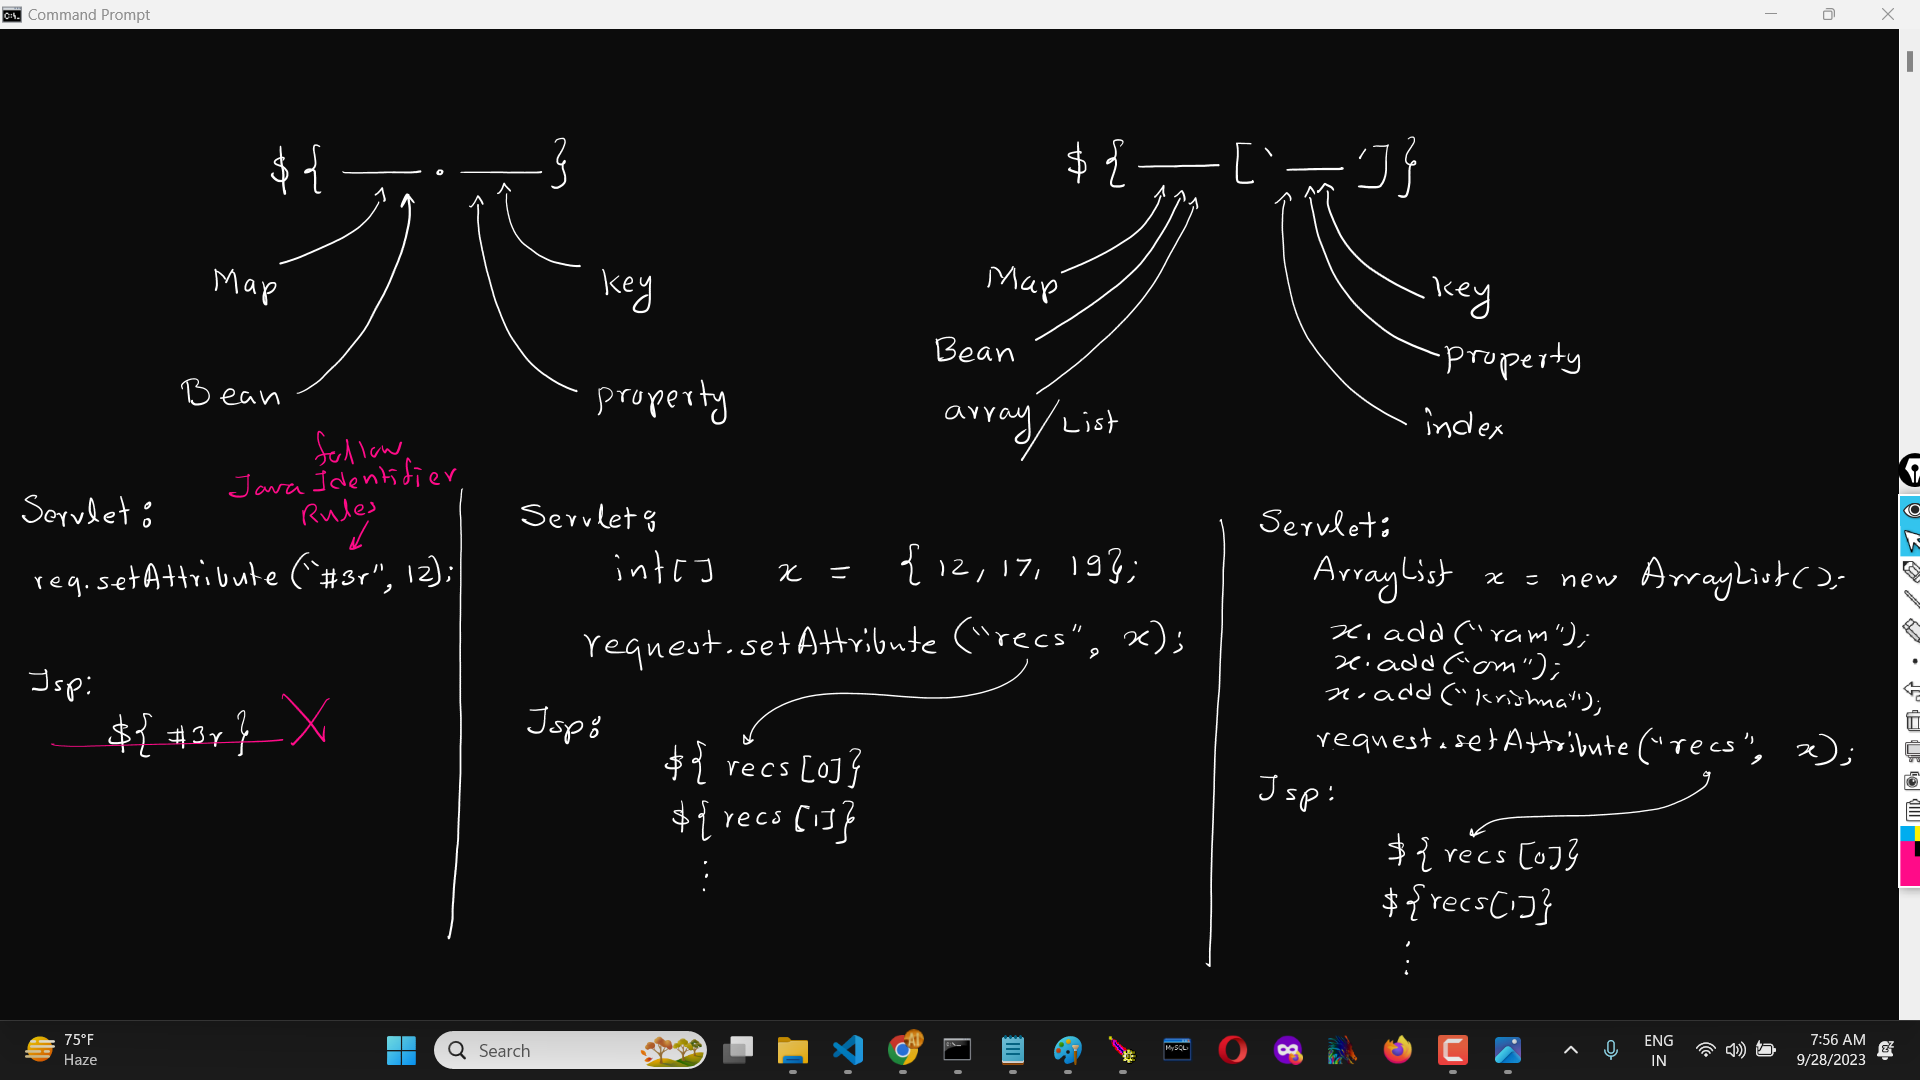 Command Prompt
${ ___ . ___ }
Map
key
Bean
property
${ ___ [' ___ ']}
Map
key
Bean
property
array / List
index
follow
Java Identifier
Rules
Servlet:
req.setAttribute("#3r", 12);
Jsp:
${ #3r } X
Servlet:
int[] x = { 12, 17, 19};
request.setAttribute("recs", x);
Jsp:
${ recs [0]}
${ recs [1]}
⋮
Servlet:
ArrayList x = new ArrayList();
x.add("ram");
x.add("om");
x.add("krishna");
request.setAttribute("recs", x);
Jsp:
${ recs [0]}
${recs[1]}
⋮
75°F
Haze
Search
AI
MySQL
ENG
IN
7:56 AM
9/28/2023